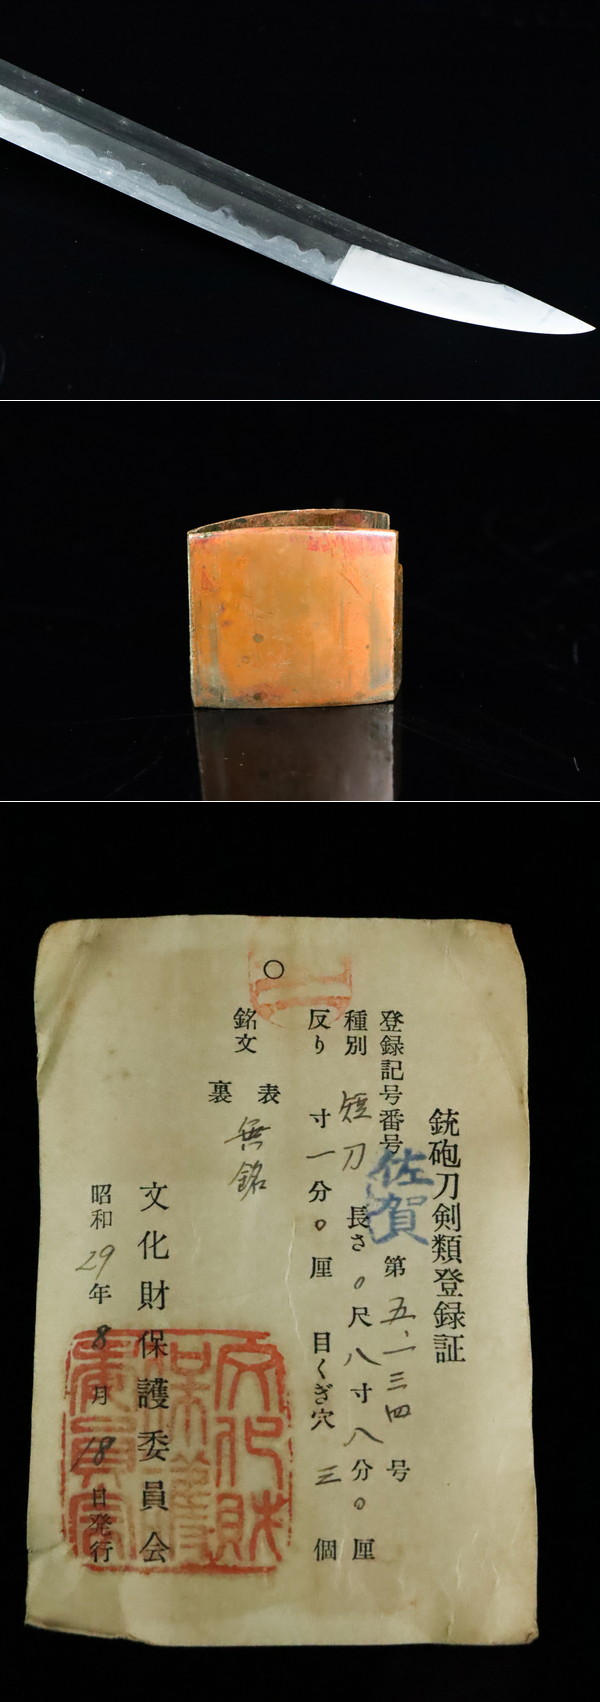 銃砲刀剣類登録証
登録記号番号 佐賀 第五一三四号
種別 短刀 長さ〇尺八寸八分〇厘
反り 寸一分〇厘 目くぎ穴 三個
銘文 表 無銘
裏
文化財保護委員会
昭和29年8月18日発行
文化財保護委員会